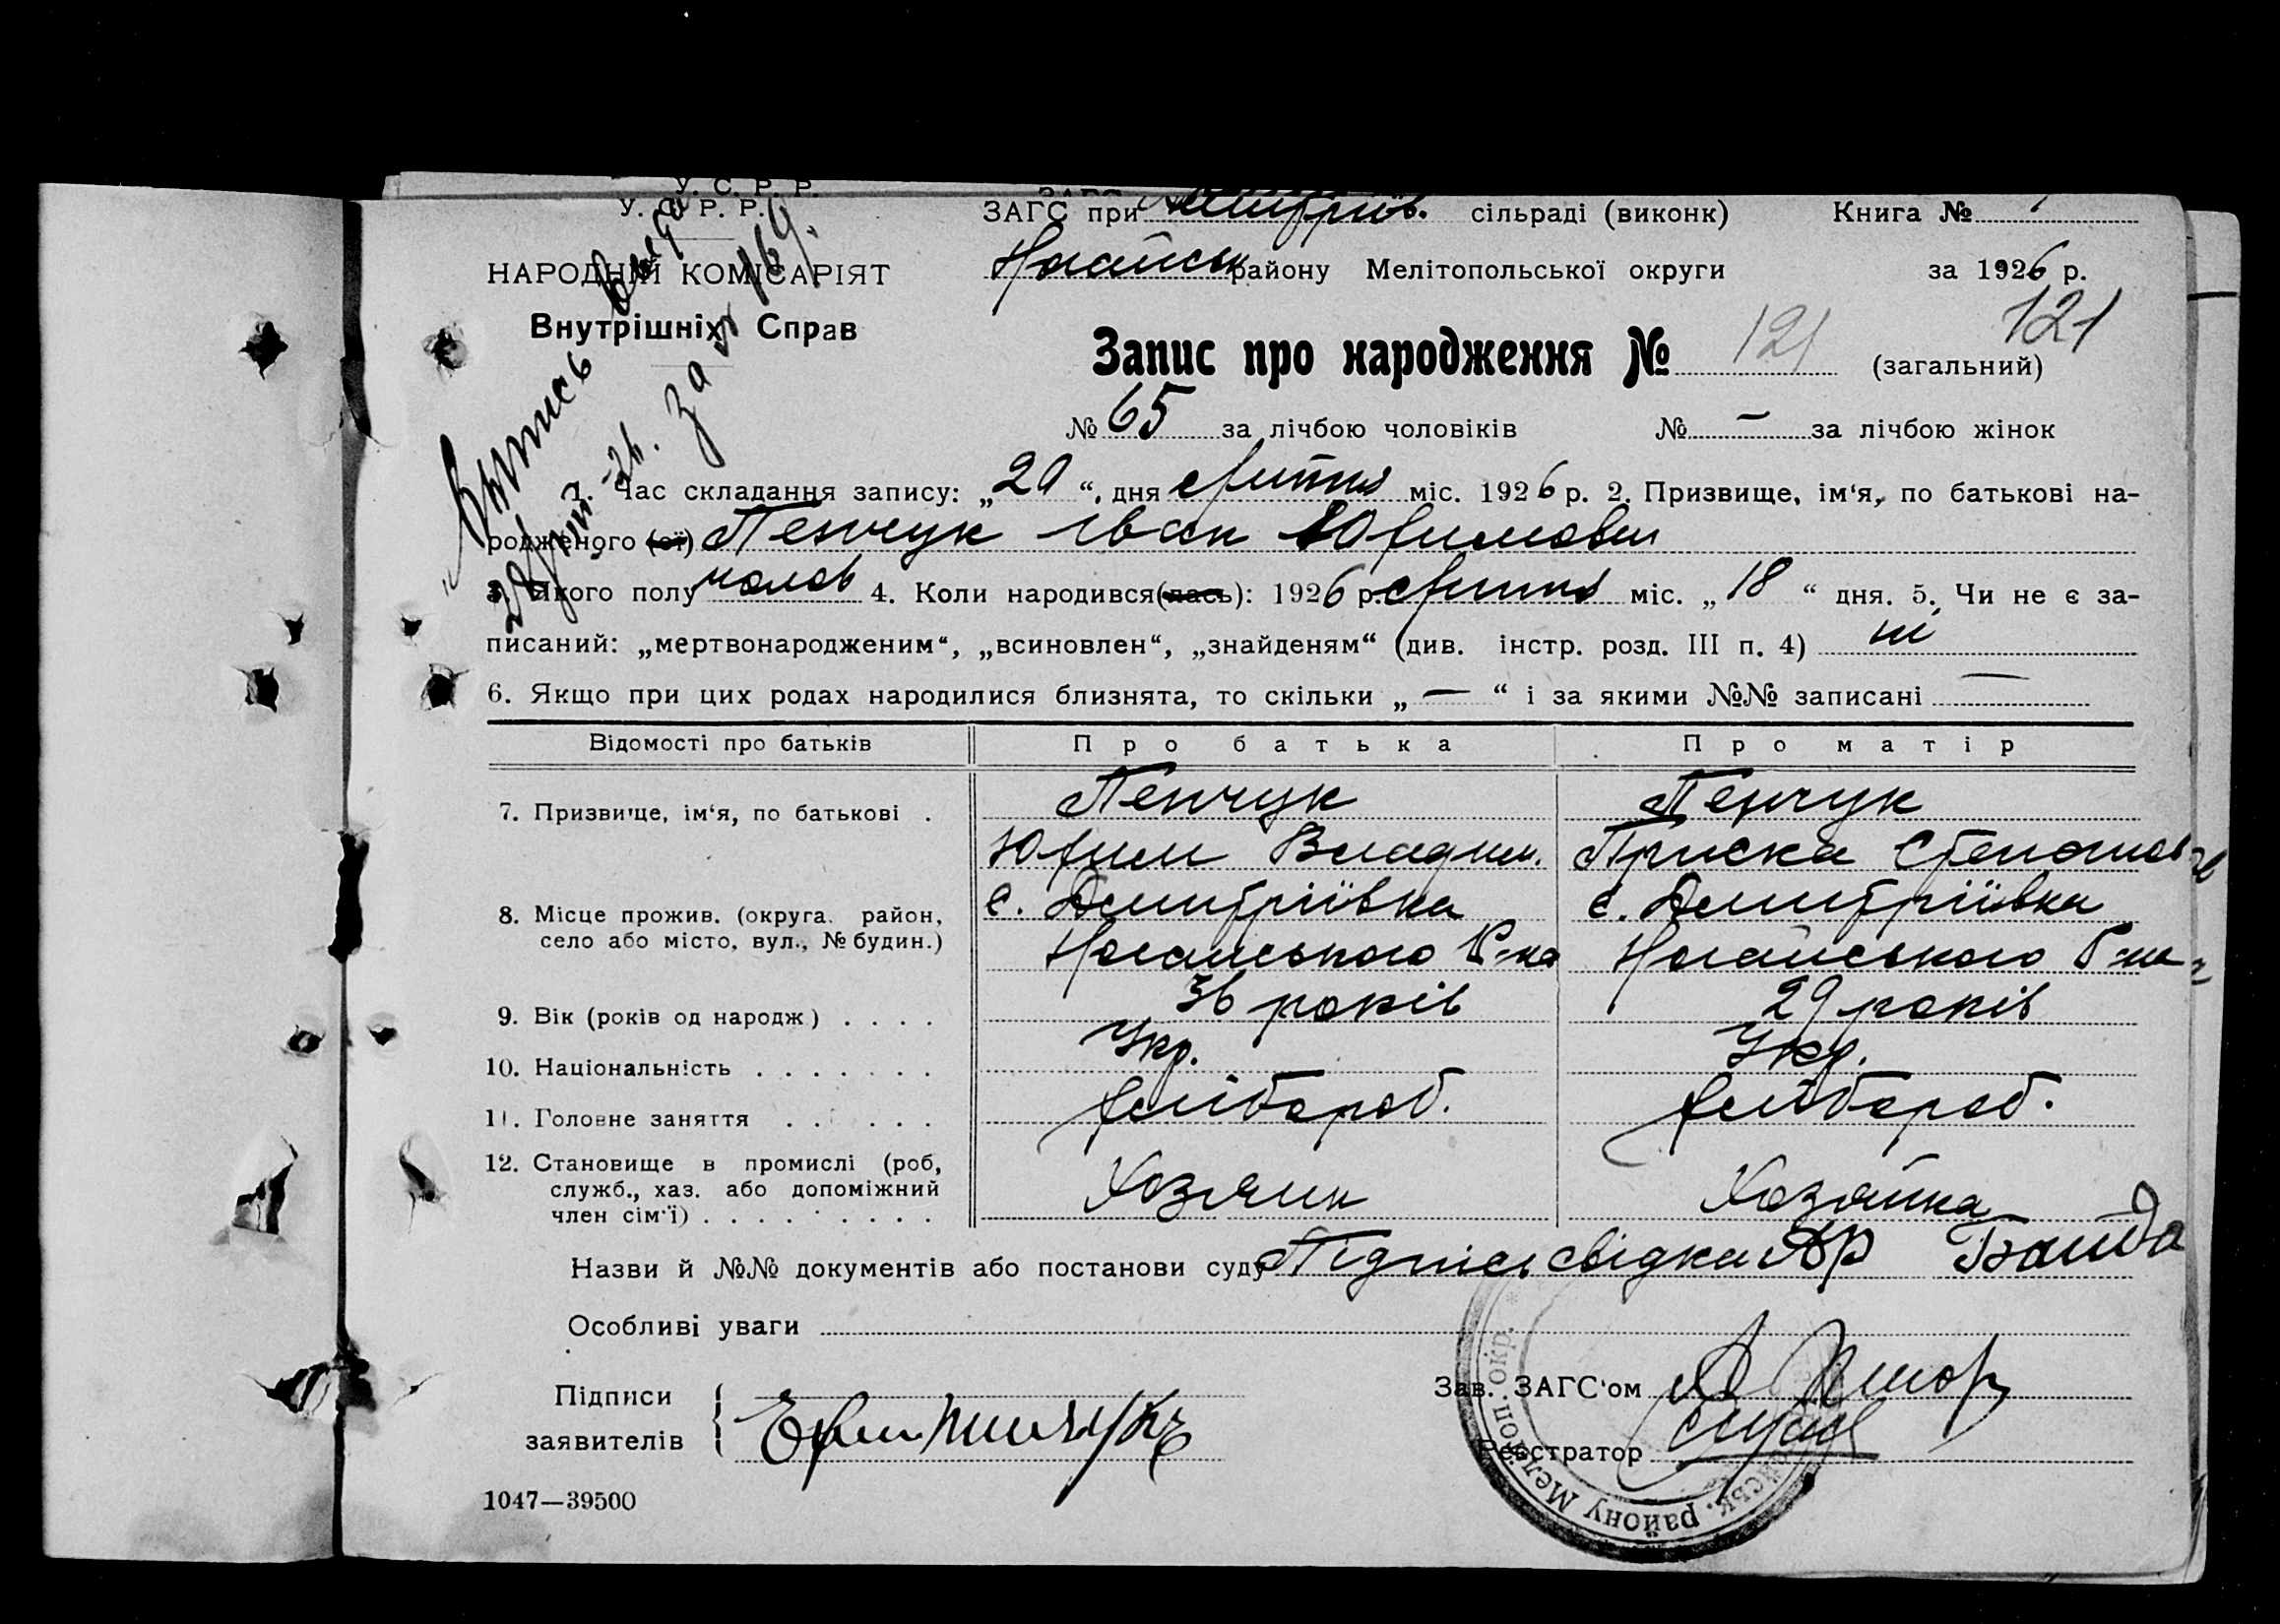 У. С. Р. Р.
У. С. Р. Р.
НАРОДНІЙ КОМІСАРІЯТ
Внутрішніх Справ
ЗАГС при Дмитріїв. сільраді (виконк) Книга №
Ногайськ району Мелітопольської округи за 1926 р.
121
Запис про народження № 121 (загальний)
№ 65 за лічбою чоловіків № — за лічбою жінок
Выпись выдана
за № 169.
1. Час складання запису: „29“, дня липня міс. 1926 р. 2. Призвище, ім'я, по батькові на-
родженого (ої) Пенчук Іван Юфимович
3. Якого полу чолов 4. Коли народився(лась): 1926 р. липня міс. „18“ дня. 5. Чи не є за-
писаний: „мертвонародженим“, „всиновлен“, „знайденям“ (див. інстр. розд. III п. 4) ні
6. Якщо при цих родах народилися близнята, то скільки „—“ і за якими №№ записані —
Відомості про батьків Про батька Про матір
7. Призвище, ім'я, по батькові . Пенчук Пенчук
Юфим Владим. Приска Степановн
8. Місце прожив. (округа, район, село або місто, вул., № будин.) с. Дмитріївка с. Дмитріївка
Ногайського Р-на Ногайського Р-на
9. Вік (років од народж) . . . . 36 років 29 років
10. Національність . . . . . . . Укр. Укр.
11. Головне заняття . . . . . . хлібороб. хлібороб.
12. Становище в промислі (роб, служб., хаз. або допоміжний член сім'ї) . . . . . . . . . Хозяин Хозяйка
Назви й №№ документів або постанови суду Підпись свідка Байда
Особливі уваги
Підписи
заявителів
Зав. ЗАГС'ом
Реєстратор
району Меліtoп. окр.
1047—39500